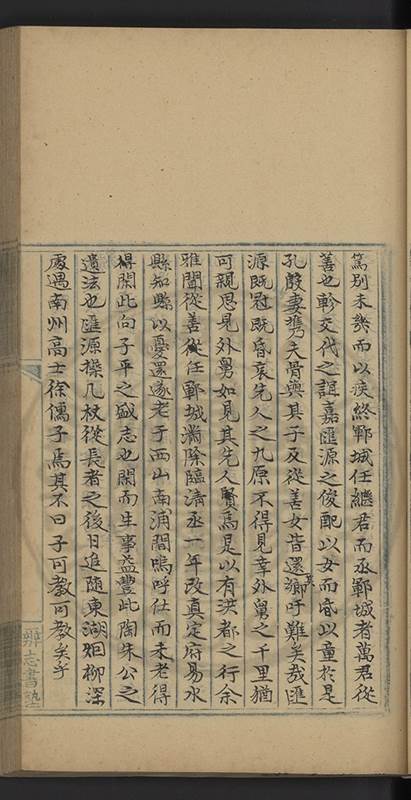 篤別未幾而以疾終鄆城任繼君而丞鄆城者萬君從
善也軫交代之誼嘉匯源之俊配以女而㛰以童於是
孔殷妻携夫骨與其子及從善女皆還鄉吁難矣哉匯
源既冠既昏哀先人之九原不得見幸外舅之千里猶
可親思見外舅如見其先人賢焉是以有洪都之行余
雅聞從善從任鄆城滿除臨淸丞一年改真定府易水
縣知縣以憂還遂老于西山南浦間嗚呼仕而未老得
閑此向子平之盛志也閑而生事益豐此陶朱公之
遺法也匯源操几杖從長者之後日追隨東湖烟柳深
處遇南州高士徐儒子焉其不曰子可敎可敎矣乎